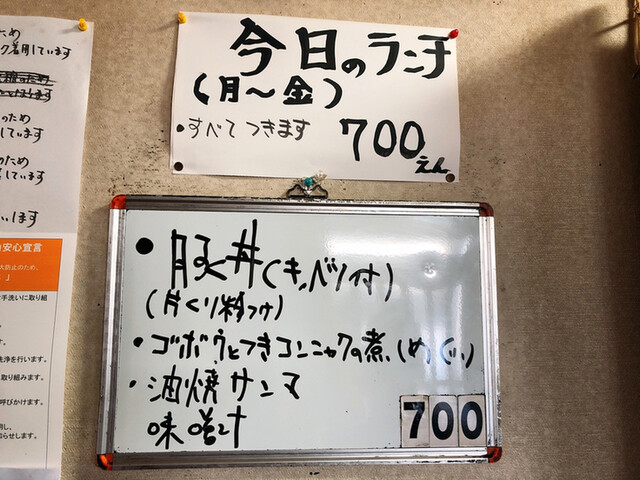 ため
ク着用しています
のため
しています
のため
しています
います
今日のランチ
(月～金)
・すべてつきます 700えん
安心宣言
防止のため、
手洗いに取り組
洗浄を行います。
取り組みます。
呼びかけます。
らせします。
●豚丼(キャベツ付)
(片くり粉つけ)
・ゴボウとつきコンニャクの煮
・油焼サンマ
味噌汁
700